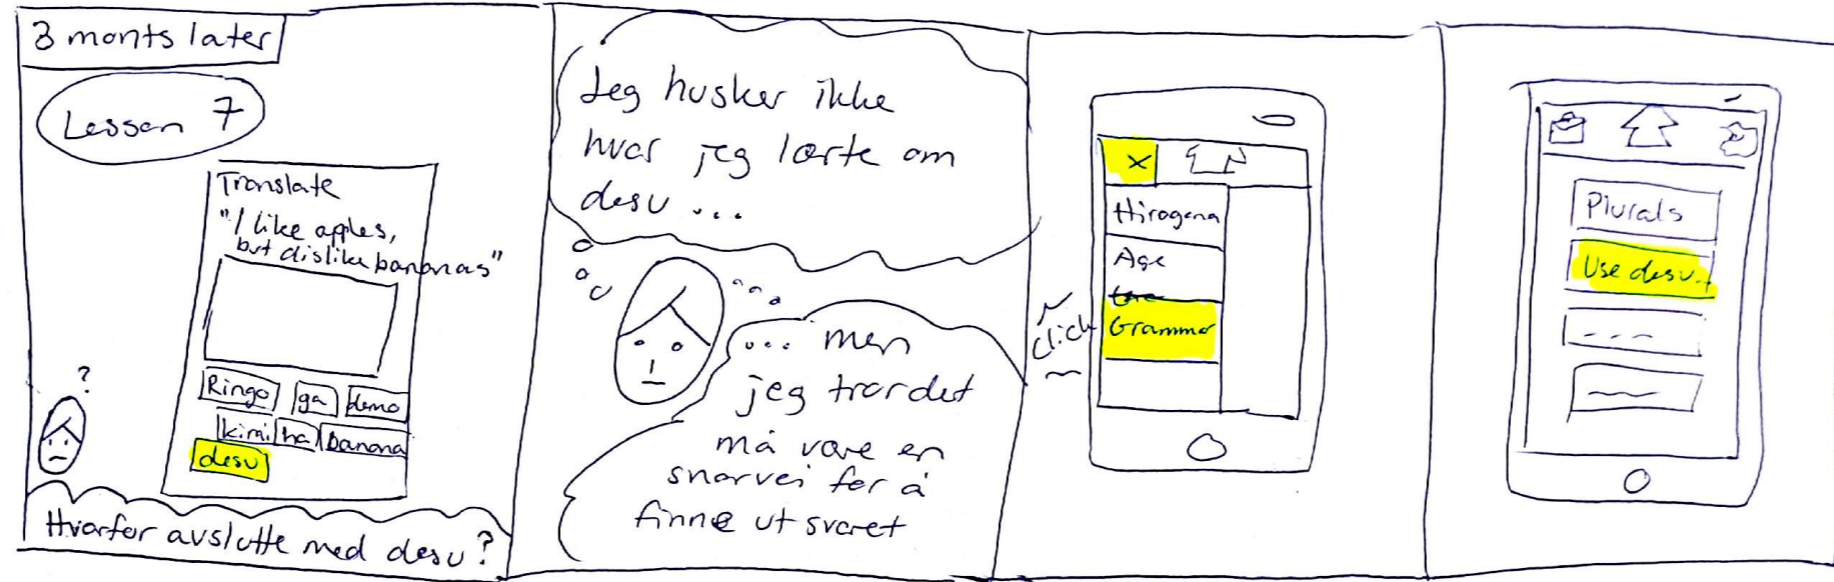 3 monts later
Lesson 7
Translate
"I like apples,
but dislike bananas"
Ringo ga demo
kimi ha banana
desu
?
Hvorfor avslutte med desu?
Jeg husker ikke
hvor jeg lærte om
desu ...
... men
jeg tror det
må være en
snarvei for å
finne ut svaret
click
X
Hiragana
Age
Grammar
Plurals
Use desu..